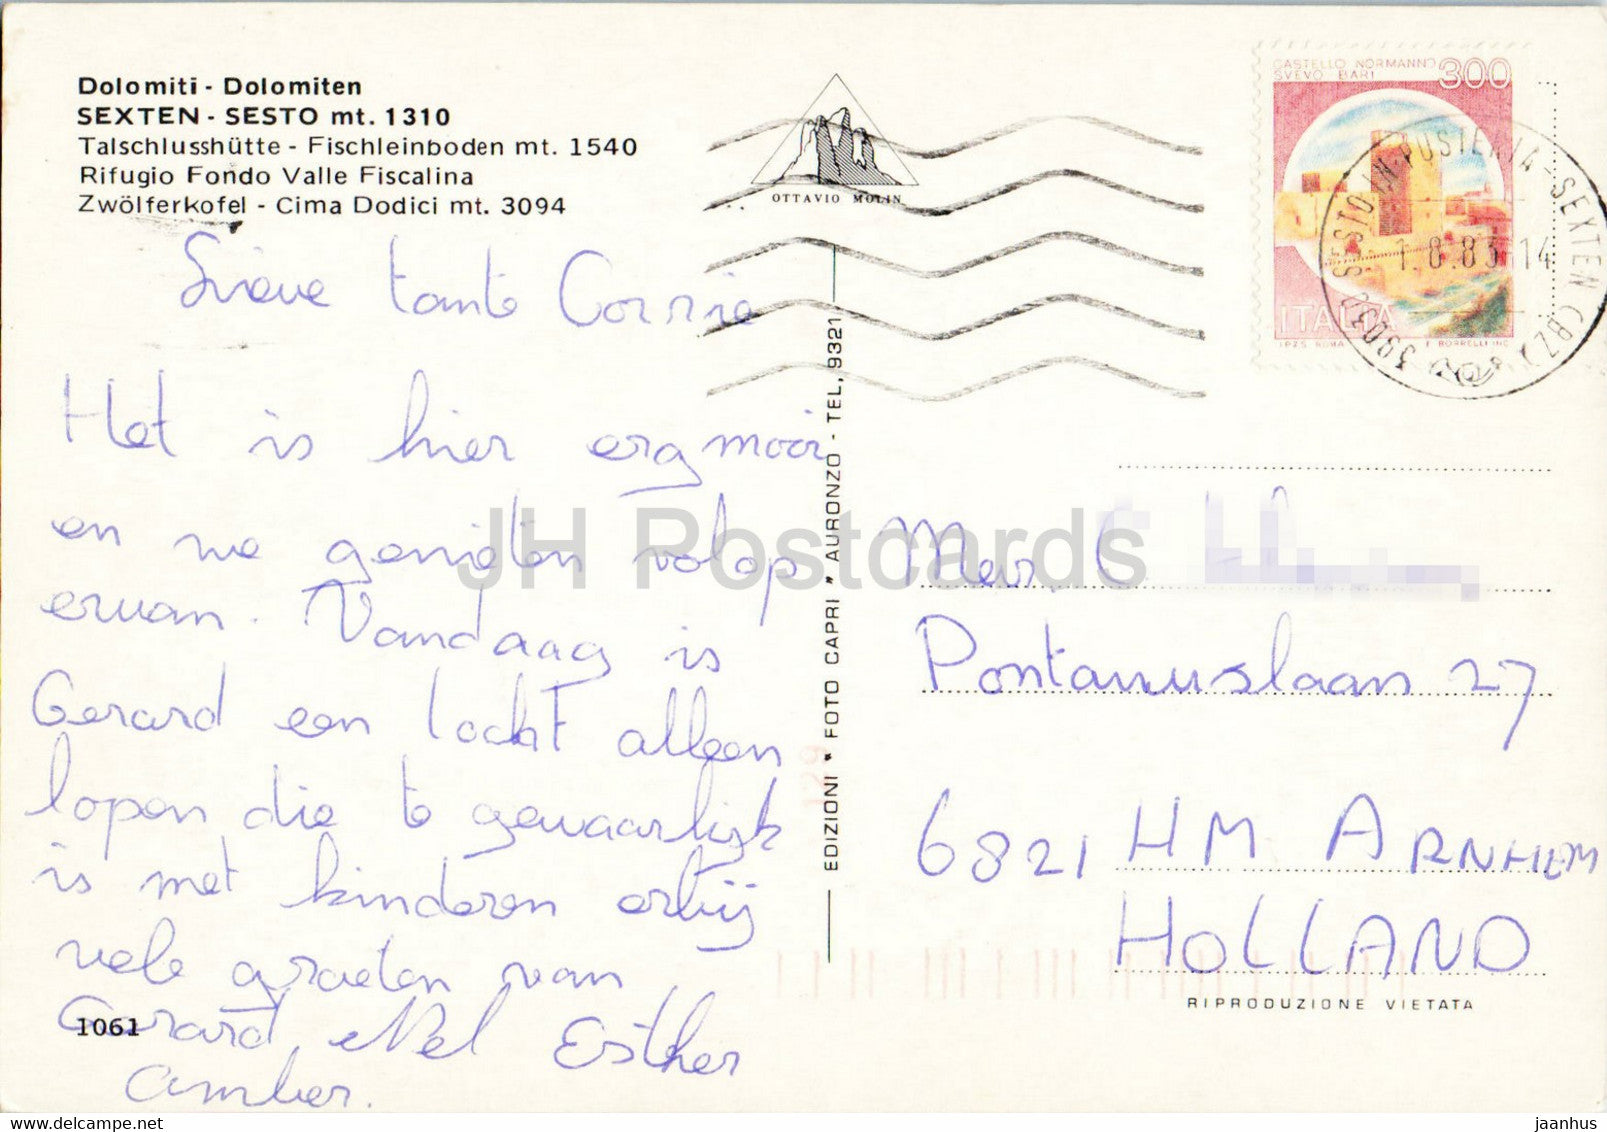 Dolomiti - Dolomiten
SEXTEN - SESTO mt. 1310
Talschlusshütte - Fischleinboden mt. 1540
Rifugio Fondo Valle Fiscalina
Zwölferkofel - Cima Dodici mt. 3094
OTTAVIO MOLIN
CASTELLO NORMANNO
SVEVO BARI
300
ITALIA
I.P.Z.S. ROMA
F. BORRELLI INC.
39030 SESTO IN PUSTERIA - SEXTEN (BZ)
1.8.83.14
Lieve tante Corrie
Het is hier erg mooi
en we genieten volop
ervan. Vandaag is
Gerard een tocht alleen
lopen die te gevaarlijk
is met kinderen erbij
vele groeten van
Gerard, Nel Esther
Amber.
1061
EDIZIONI * FOTO CAPRI * AURONZO - TEL. 9321
Mev. C
Pontanuslaan 27
6821 HM ARNHEM
HOLLAND
RIPRODUZIONE VIETATA
JH Postcards
delcampe.net
jaanhus